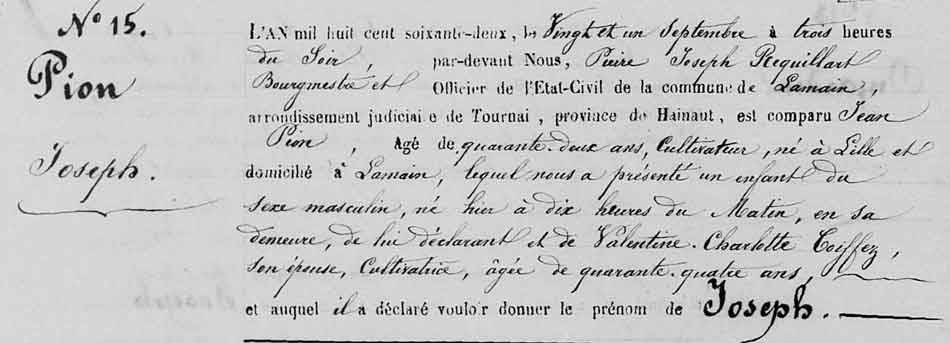 N° 15.
Pion
Joseph.
L'AN mil huit cent soixante-deux, le Vingt et un Septembre à trois heures
du Soir, par-devant Nous, Pierre Joseph Pecquillart
Bourgmestre et Officier de l'Etat-Civil de la commune de Lamain,
arrondissement judiciai e de Tournai, province de Hainaut, est comparu Jean
Pion, Agé de quarante-deux ans, Cultivateur, né à Lille et
domicilié à Lamain, lequel nous a présenté un enfant du
sexe masculin, né hier à dix heures du Matin, en sa
demeure, de lui déclarant et de Valentine-Charlotte Coiffez,
son épouse, Cultivatrice, âgée de quarante-quatre ans,
et auquel il a déclaré vouloir donner le prénom de Joseph.